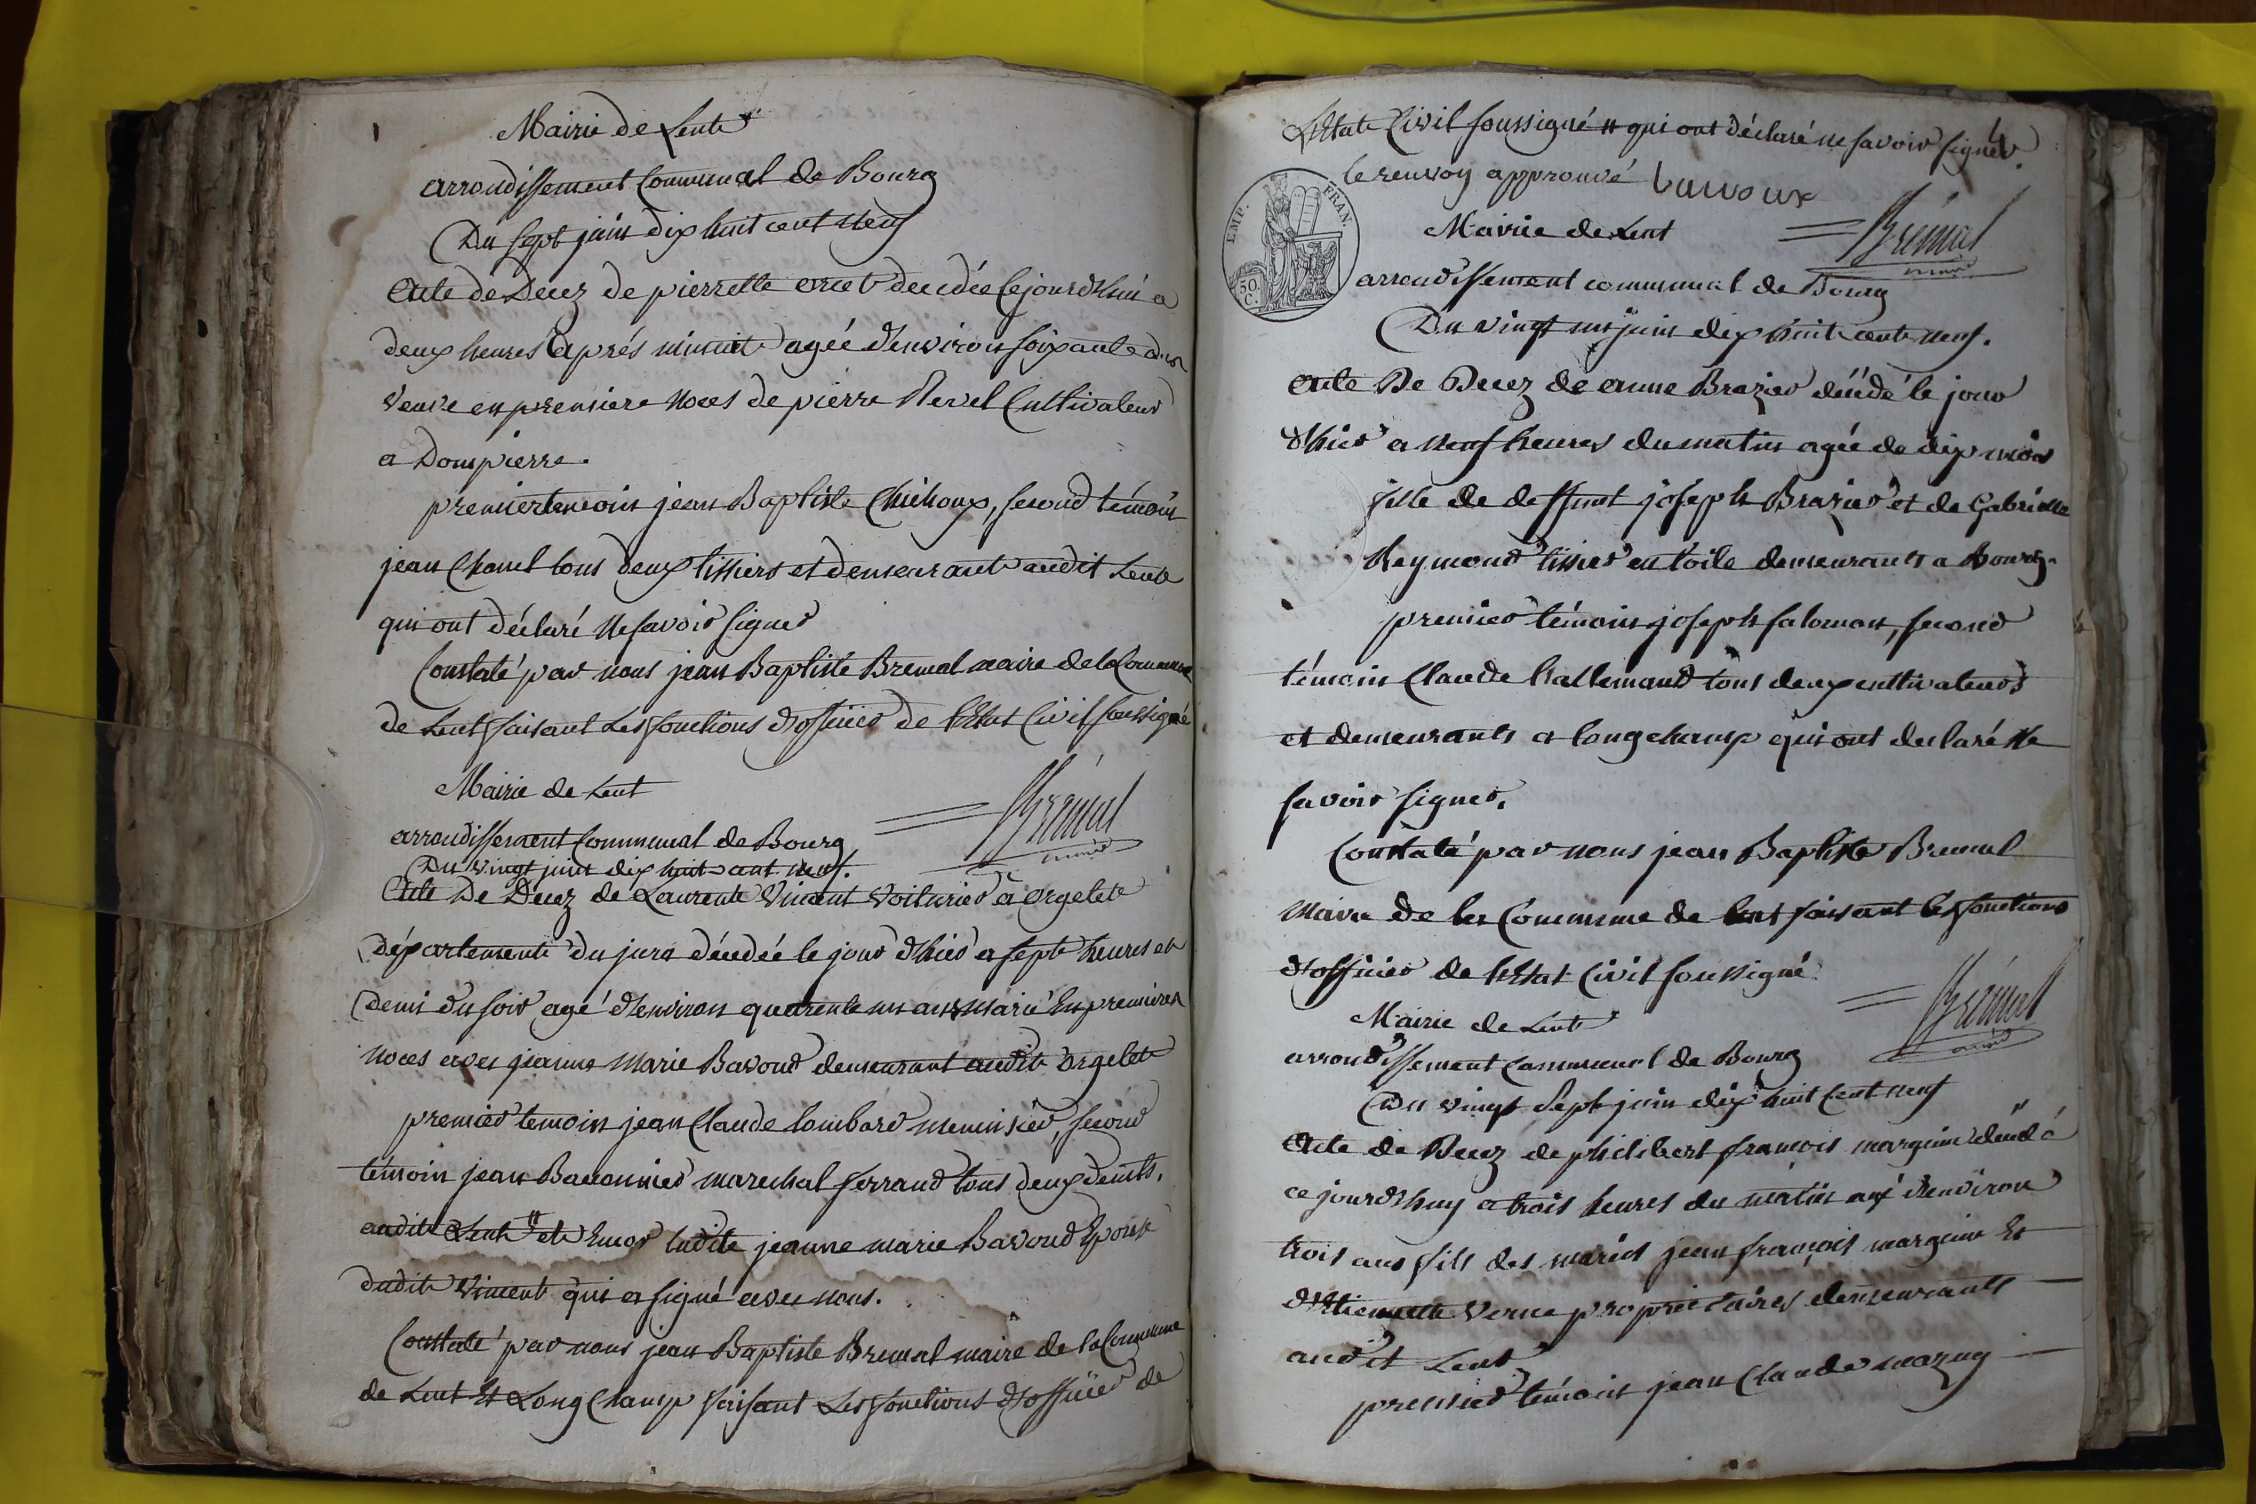 Mairie de Lent
arrondissement Communal de Bourg
Du Sept juin dix huit cent neuf
Acte de Decez de pierrette decedée cejourdhui a
deux heures après minuit agée d'environ soixante ans
veuve en premiere noces de pierre Revel Cultivateur
a Dompierre.
premier temoin jean Baptiste Chichoux, second témoin
jean Chanel tous deux tissiers et demeurant audit Lent
qui ont déclaré ne savoir signer
Constaté par nous jean Baptiste Bremal maire de la Commune
de Lent faisant Les fonctions d'officier de l'Etat Civil soussigné
Brémal
maire
Mairie de Lent
arrondissement Communal de Bourg
Du vingt juin dix huit cent neuf.
Acte De Decez de Laurent Vincent voiturier à orgelet
département du jura décédée le jour d'hier a sept heures et
demi du soir agé d'environ quarente un ans marié En premieres
noces avec jeanne marie Bavoud demeurant audit orgelet
premier temoin jean Claude Lombard menuisier, second
témoin jean Baconnier marechal ferrand tous deux demts.
audit Lent # et Encor ladite jeanne marie Bavoud Epouse
dudit Vincent qui a signé avec nous.
Constaté par nous jean Baptiste Bremal maire de la Commune
de Lent Et Long Champ faisant Les fonctions d'officier de
4
L'Etat Civil soussigné # qui ont déclaré ne savoir signer.
le renvoy approuvé
Brémal
maire
EMP. FRAN.
50. C.
Mairie de Lent
arrondissement communal de Bourg
Du vingt un juin dix huit cent neuf.
Acte De Decez de anne Brazier décédé le jour
d'hier a neuf heures du matin agée de dix mois
fille de deffunt joseph Brazier et de Gabrielle
Reymond tissier en toile demeurants a Bourg.
premier témoin joseph salomon, second
témoin Claude Lallemand tous deux cultivateurs
et demeurants a longchamp qui ont declaré ne
savoir signer.
Constaté par nous jean Baptiste Bremal
maire de la Commune de Lent faisant les fonctions
d'officier de l'Etat Civil soussigné
Brémal
maire
Mairie de Lent
arrondissement Communal de Bourg
Du vingt Sept juin dix huit Cent neuf
Acte de Decez de philibert françois marguin décédé
ce jourd'huy a trois heures du matin agé d'environ
trois ans fils des mariés jean françois marguin Et
d'Etiennette Verne propriétaires demeurants
audit Lent
premier témoin jean Claude mazuy